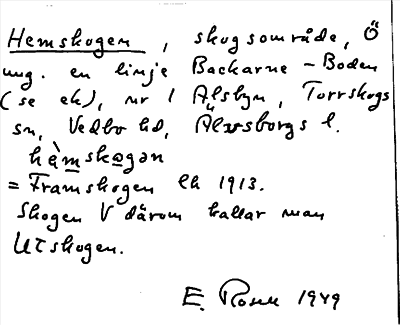 Hemskogen, skogsområde, Ö
ung. en linje Backarne - Boden
(se ek), nr 1 Älsbyn, Torrskogs
sn, Vedbo hd, Älvsborgs l.
hèmskogən
= Framskogen Ek 1913.
Skogen V därom kallar man
Utskogen.
E. Rosell 1949